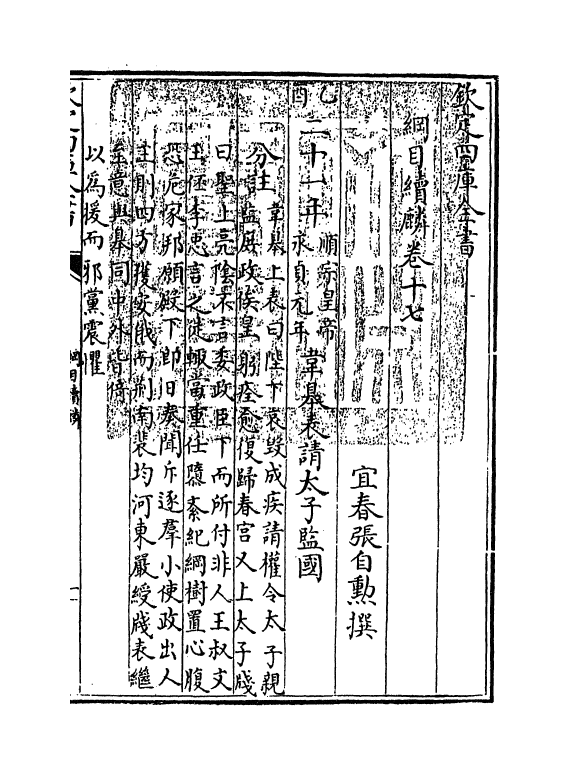 欽定四庫全書
綱目續麟卷十七
宜春張自勲撰
乙酉
二十一年
順宗皇帝
永貞元年
韋臯表請太子監國
分註
韋臯上表曰陛下哀毁成疾請權令太子親
監庶政俟皇躬痊愈復歸春宫又上太子牋
曰聖上亮陰不言委政臣下而所付非人王叔文
王伾李忠言之徒輙當重任隳紊紀綱樹置心腹
恐危家邦願殿下即日奏聞斥逐羣小使政出人
主則四方獲安俄而荆南裴均河東嚴綬牋表繼
至意與臯同中外皆倚
以爲援而邪黨震懼